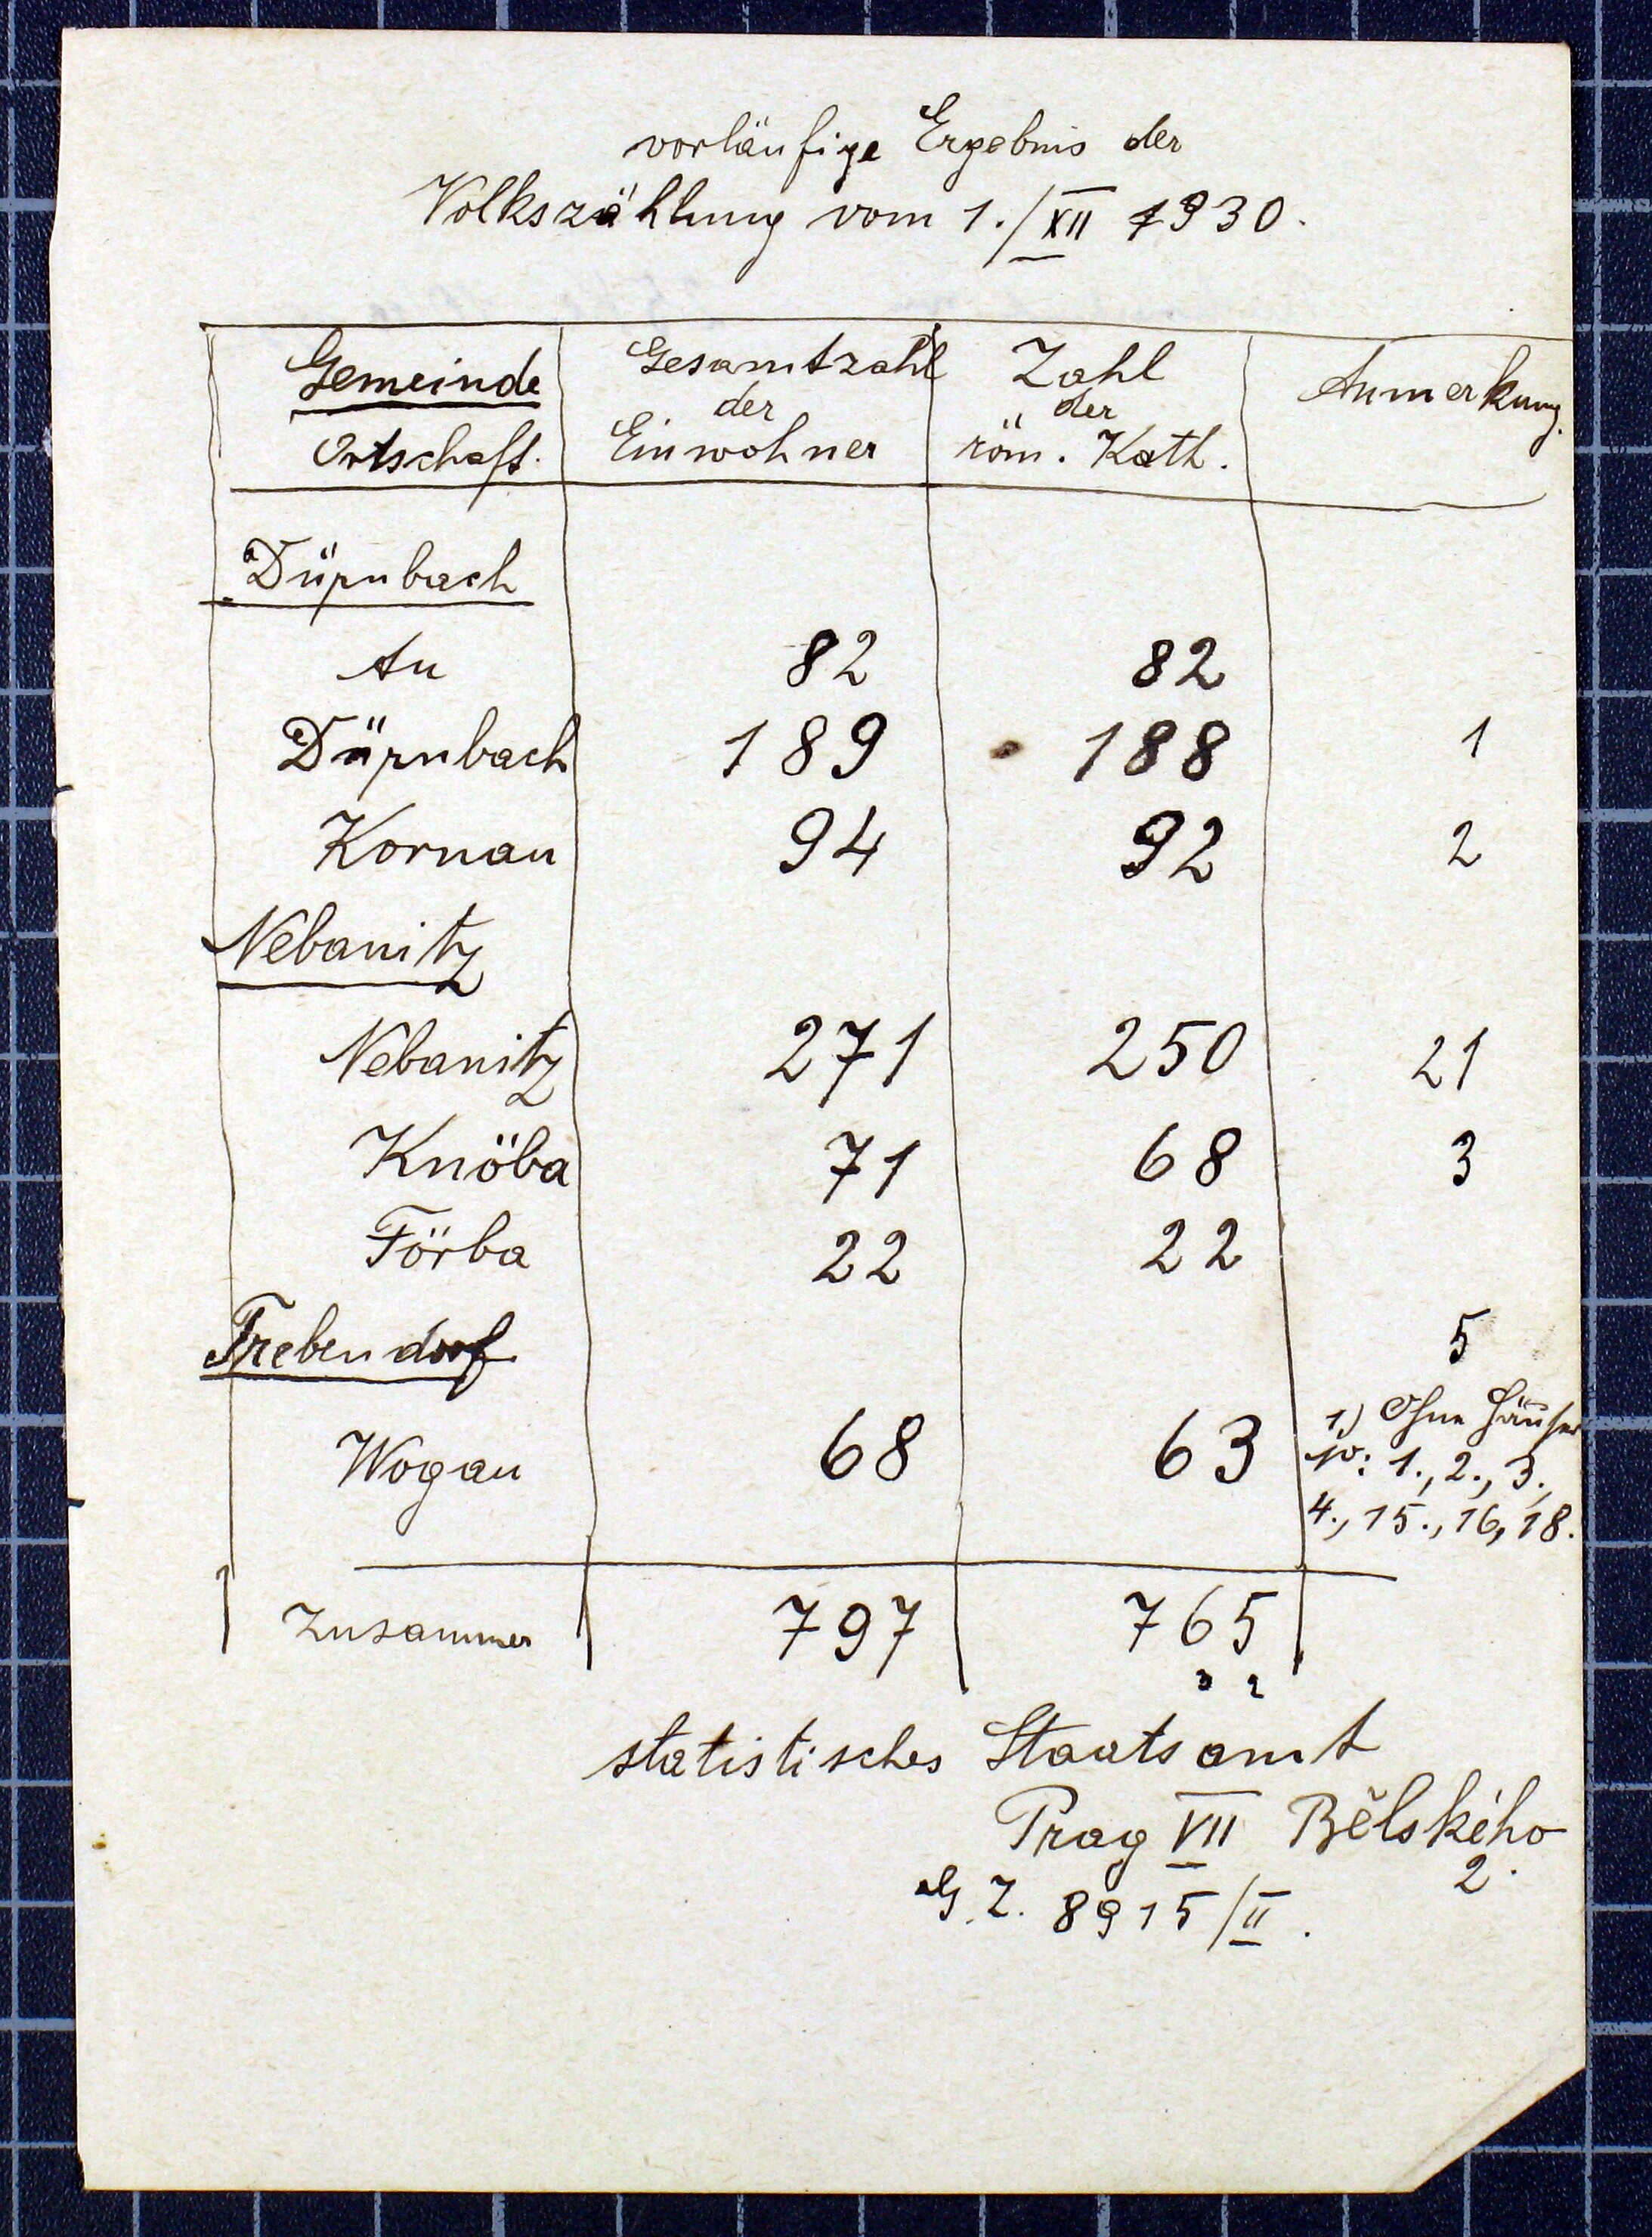 vorläufige Ergebnis der
Volkszählung vom 1./XII 1930.
Gemeinde Gesamtzahl Zahl Anmerkung.
der der
Ortschaft. Einwohner röm. Kath.
Dürnbach
Au 82 82
Dürnbach 189 188 1
Kornau 94 92 2
Nebanitz
Nebanitz 271 250 21
Knöba 71 68 3
Förba 22 22
Trebendorf 5
1) Ohne Häuser
Wogau 68 63 No: 1., 2., 3.,
4., 15., 16, 18.
Zusammen 797 765
3 2
statistisches Staatsamt
Prag VII Bělského
2.
G. Z. 8915/II.